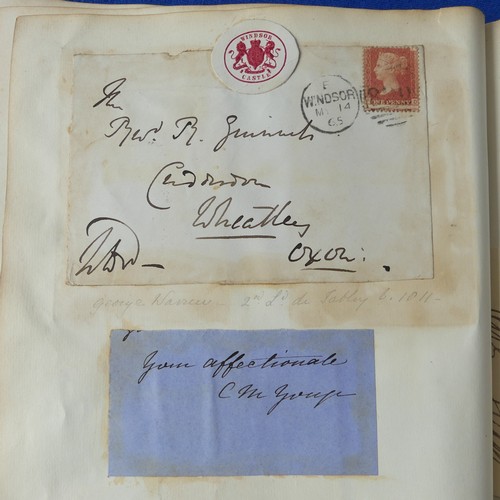 WINDSOR
CASTLE
WINDSOR
MY 14
65
ONE PENNY
Revd. R.
Cuddesdon
Wheatley
Oxon:
George Warren 2nd Ld de Tabley b. 1811
Your affectionate
C M Yonge